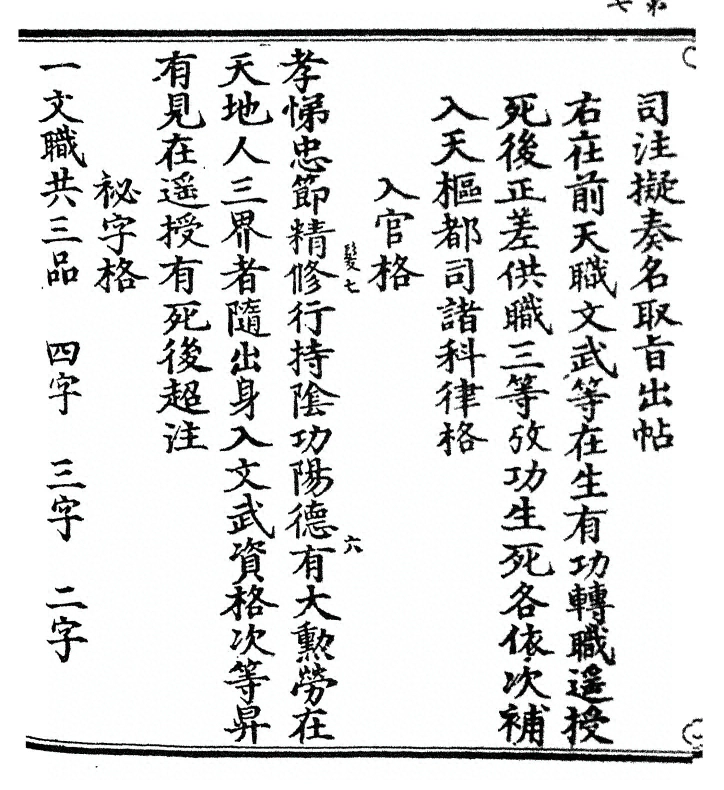 司注擬奏名取旨出帖
右在前天職文武等在生有功轉職遥授
死後正差供職三等攷功生死各依次補
入天樞都司諸科律格
入官格
髮七
六
孝悌忠節精修行持陰功陽德有大勲勞在
天地人三界者隨出身入文武資格次等昇
有見在遥授有死後超注
祕字格
一文職共三品 四字 三字 二字